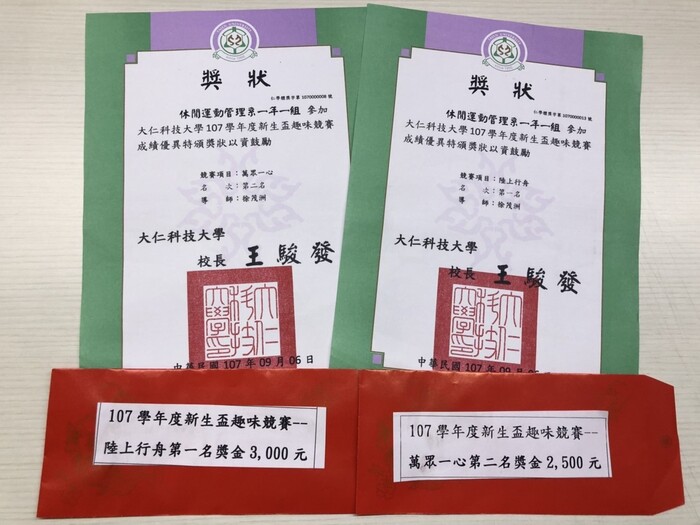 獎狀
仁學體獎字第1070000008號
休閒運動管理系一年一組 參加
大仁科技大學107學年度新生盃趣味競賽
成績優異特頒獎狀以資鼓勵
競賽項目：萬眾一心
名　　次：第二名
導　　師：徐茂洲
大仁科技大學
校長 王駿發
大仁科技大學印
中華民國 107 年 09 月 06 日
獎狀
仁學體獎字第1070000013號
休閒運動管理系一年一組 參加
大仁科技大學107學年度新生盃趣味競賽
成績優異特頒獎狀以資鼓勵
競賽項目：陸上行舟
名　　次：第一名
導　　師：徐茂洲
大仁科技大學
校長 王駿發
大仁科技大學印
中華民國 107 年 09 月
107 學年度新生盃趣味競賽--
陸上行舟第一名獎金 3,000 元
107 學年度新生盃趣味競賽--
萬眾一心第二名獎金 2,500 元